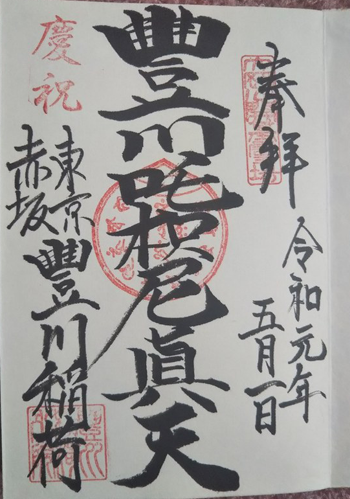 奉拝
令和元年
五月一日
豊川吒枳尼眞天
慶祝
東京
赤坂
豊川稲荷